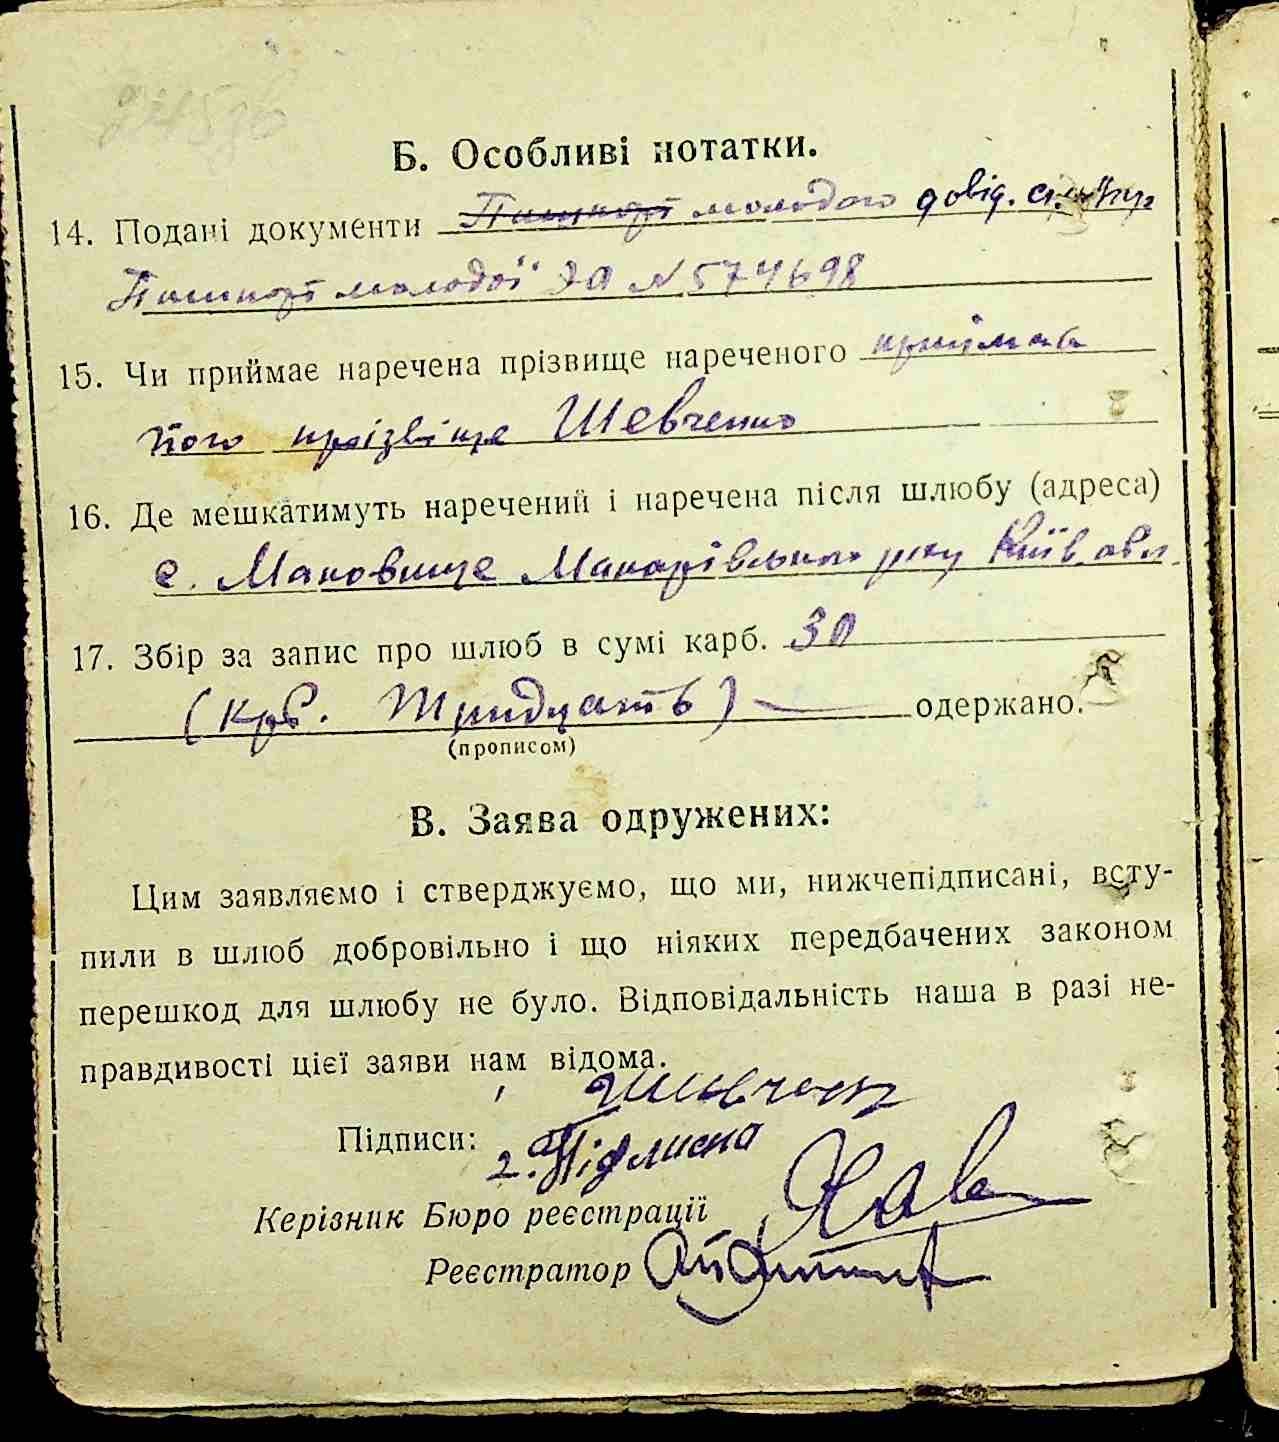 Б. Особливі нотатки.
14. Подані документи Пашпорт молодого довід. с.
Пашпорт молодої ЭО N 574698
15. Чи приймає наречена прізвище нареченого приймає
його прізвіще Шевченко
16. Де мешкатимуть наречений і наречена після шлюбу (адреса)
с. Маковище Макарівського р-ну Київ. обл.
17. Збір за запис про шлюб в сумі карб. 30
(крб. Тридцать) одержано.
(прописом)
В. Заява одружених:
Цим заявляємо і стверджуємо, що ми, нижчепідписані, всту-
пили в шлюб добровільно і що ніяких передбачених законом
перешкод для шлюбу не було. Відповідальність наша в разі не-
правдивості цієї заяви нам відома.
Підписи:
2.
Керізник Бюро реєстрації
Реєстратор